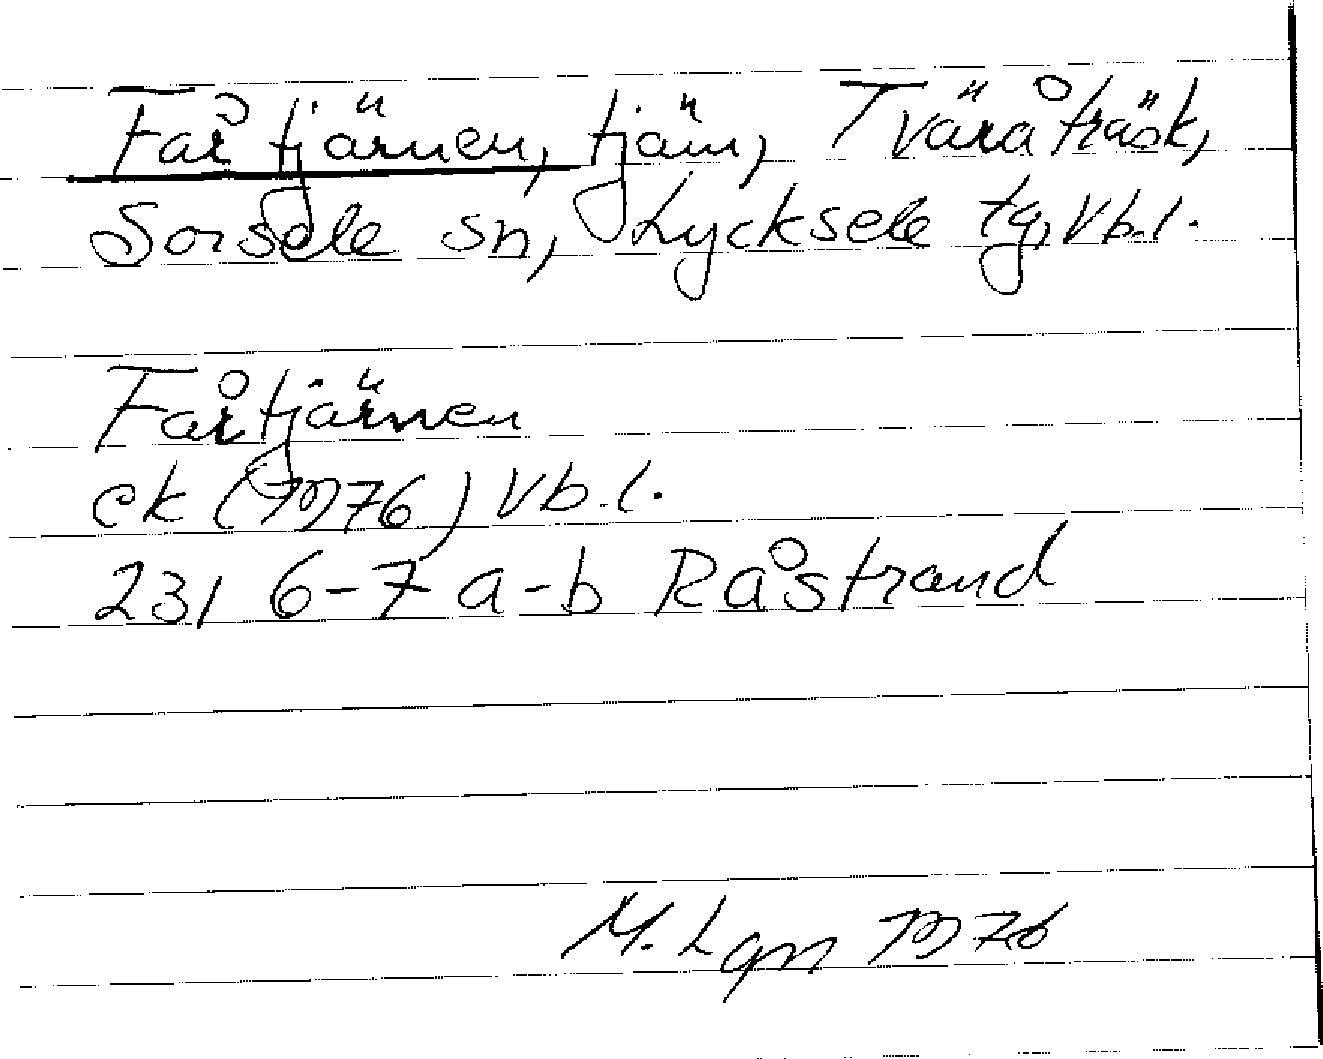 Fårtjärnen, tjärn, Tväråträsk,
Sorsele sn, Lycksele tg, Vb.l.
Fårtjärnen
ek (1976) Vb.l.
23I 6-7 a-b Råstrand
M. Lgn 1976